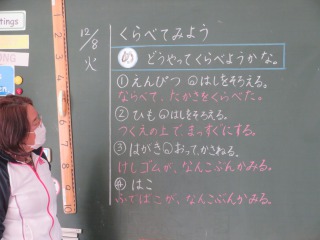 ttings
12/8
火
くらべてみよう
め どうやってくらべようかな。
①えんぴつ はしをそろえる。
ならべて、たかさをくらべた。
②ひも はしをそろえる。
つくえの上でまっすぐにする。
③はがき おって、かさねる。
けしゴムが、なんこぶんかみる。
④はこ
ふでばこが、なんこぶんかみる。